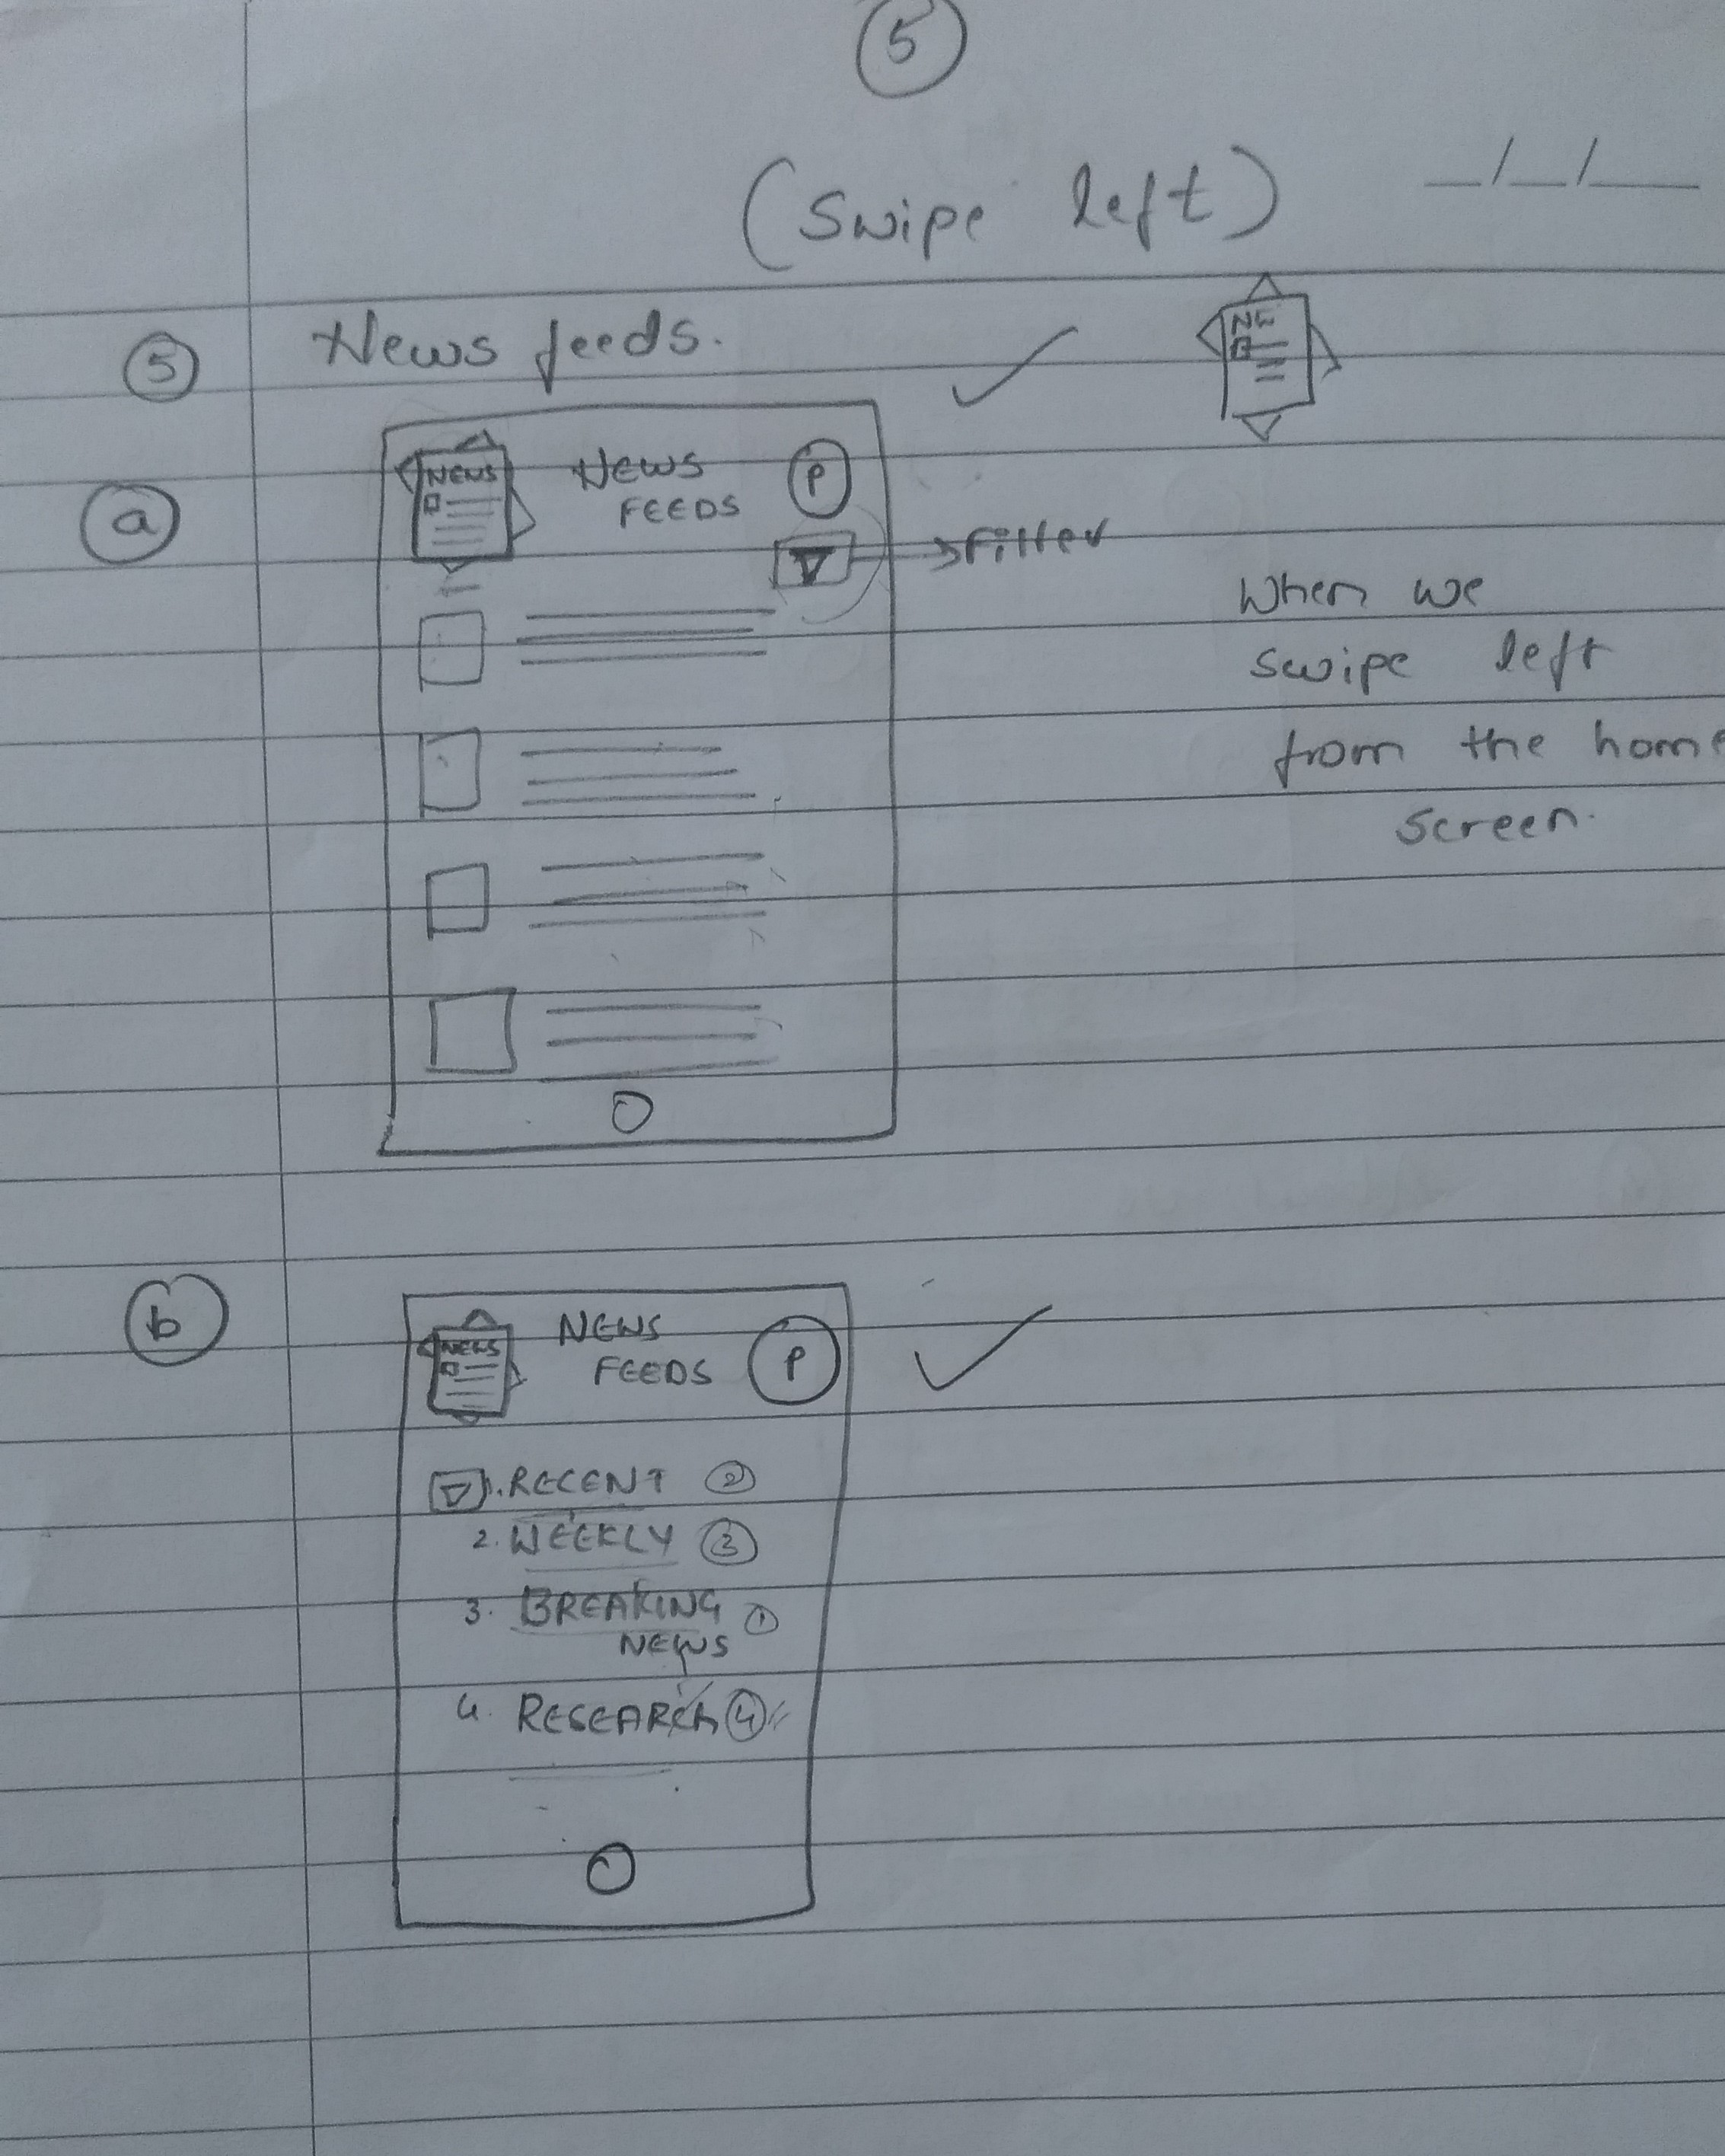 5
(Swipe left)
_/_/_
5 News feeds.
NE
a
NEWS News P
FEEDS
→ Filter
When we
swipe left
from the home
screen.
b
NEWS NEWS P
FEEDS
1. RECENT 2
2. WEEKLY 3
3. BREAKING 1
NEWS
4. RESEARCH 4